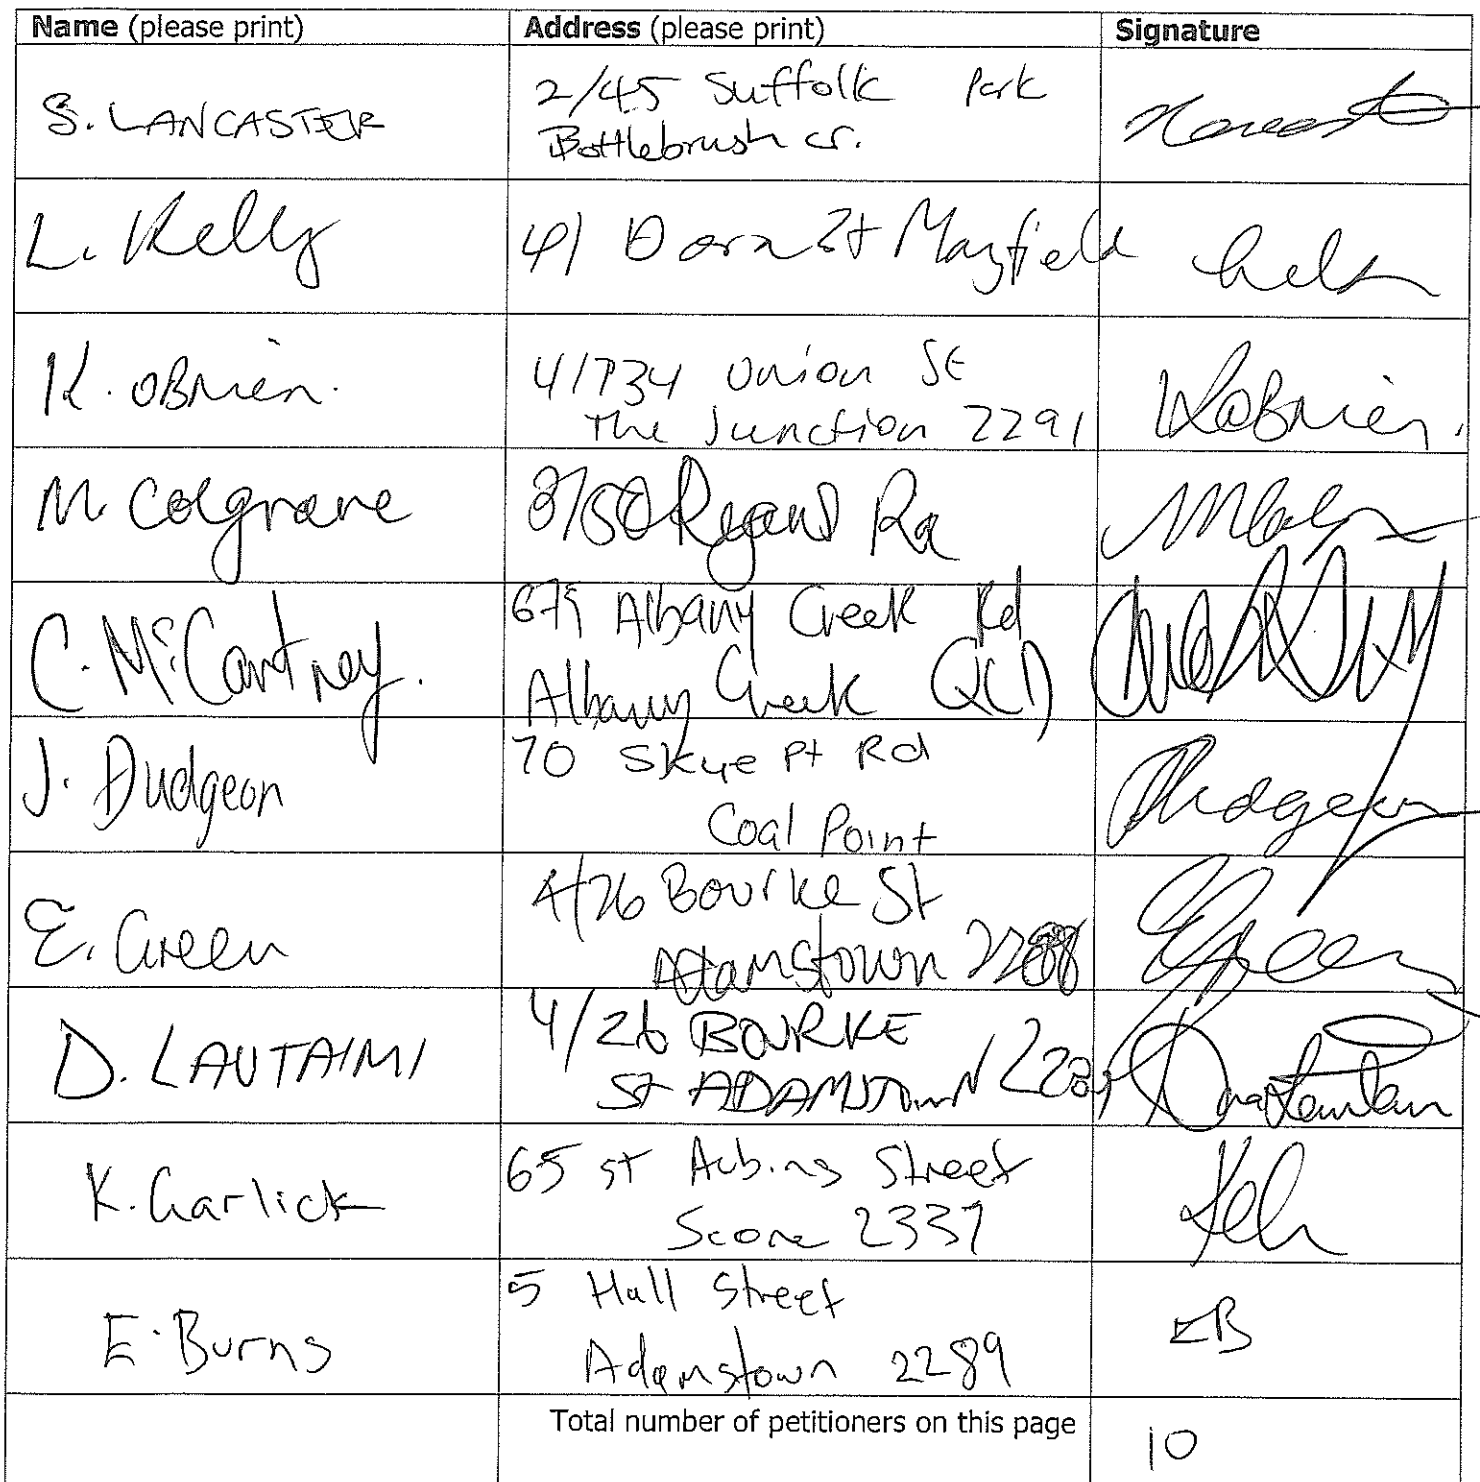 Name (please print) Address (please print) Signature
S. LANCASTER
2/45 Suffolk Park
Bottlebrush cr.
L. Kelly
41 Dora St Mayfield
K. OBrien.
4/734 Union St
The Junction 2291
KOBrien.
M. Colgrave
3/50 Rd
C. McCartney.
675 Albany Creek Rd
Albany Creek QLD
J. Dudgeon
70 Skye Pt Rd
Coal Point
Dudgeon
E. Green
4/26 Bourke St
Adamstown 2288
EGreen
D. LAUTAIMI
4/26 BOURKE
St ADAMSTOWN
K. Garlick
65 St Aubins Street
Scone 2337
E. Burns
5 Hall Street
Adamstown 2289
EB
Total number of petitioners on this page 10